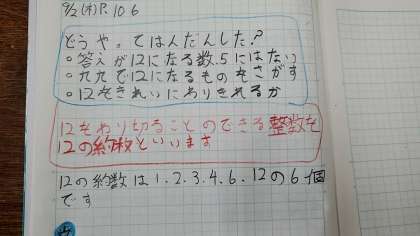 9/2(木)P.106
どうやってはんだんした?
○答えが12になる数.5にはない
○九九で12になるものをさがす
○12をきれいにわりきれるか
12をわり切ることのできる整数を
12の約数といいます
12の約数は1.2.3.4.6.12の6個
です